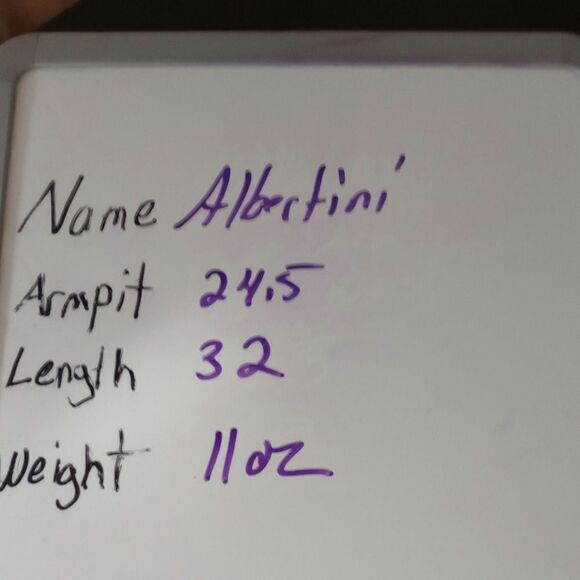 Name Albertini
Armpit 24.5
Length 32
Weight 11 oz